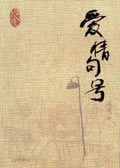 爱情句号